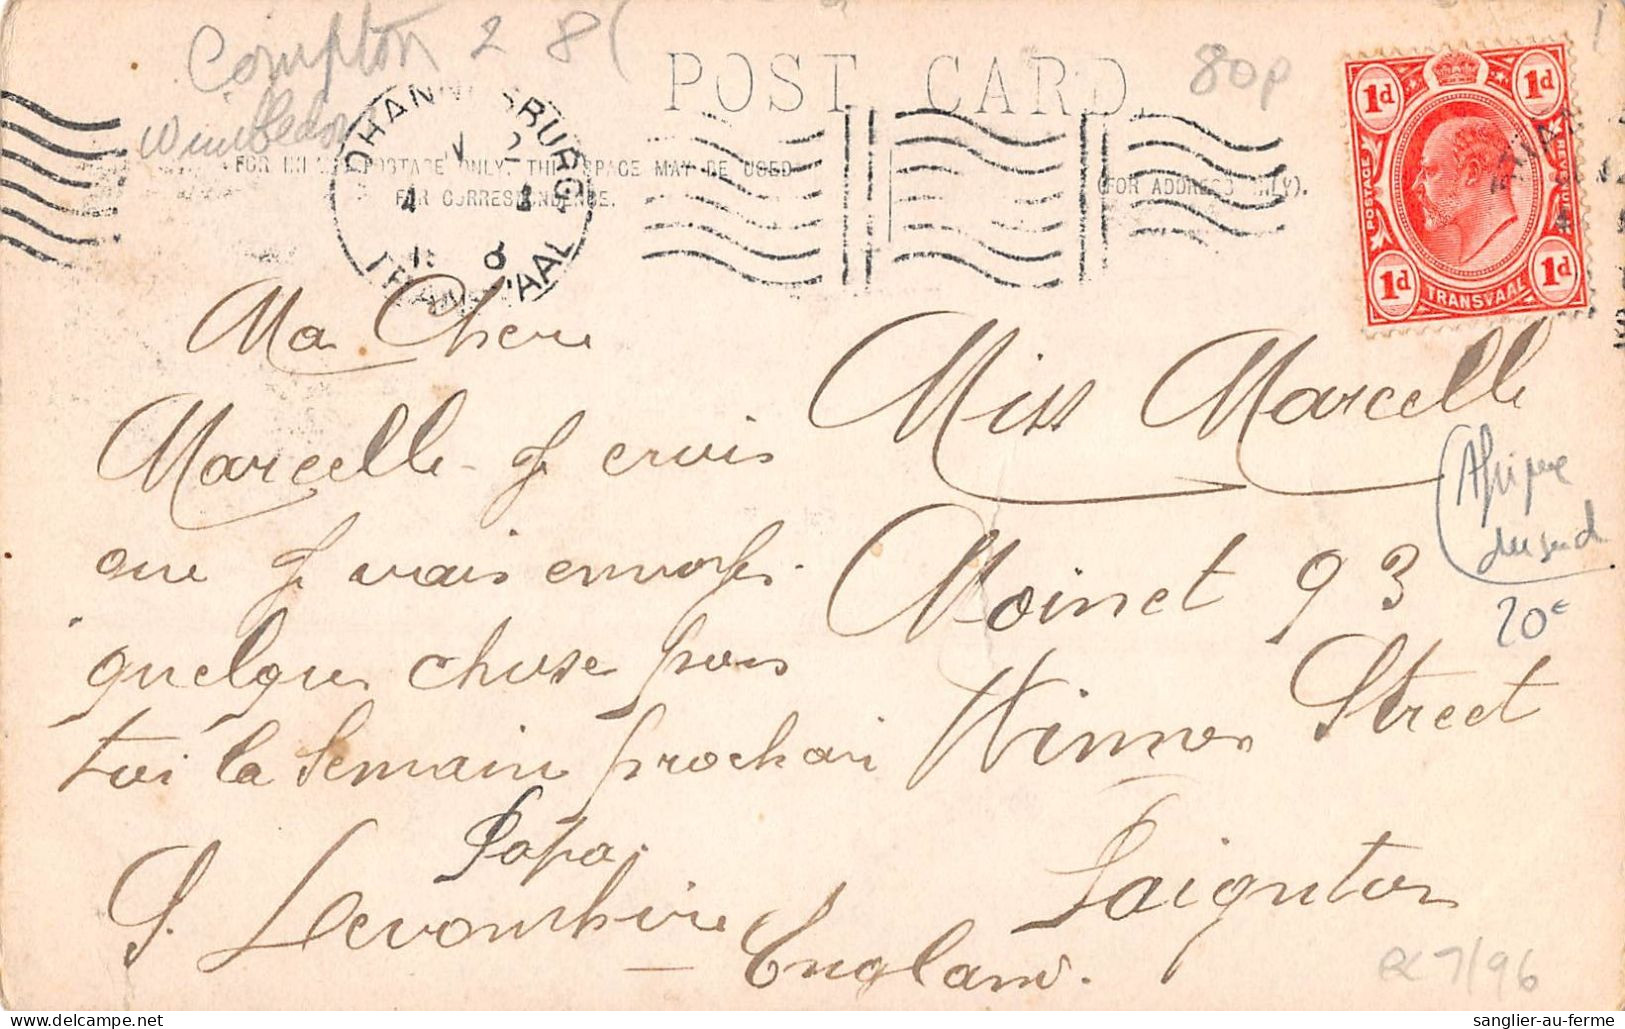 Compton 2 8
Wimbledon
80p
POST CARD.
FOR INLAND POSTAGE ONLY, THIS SPACE MAY BE USED
FOR CORRESPONDENCE.
(FOR ADDRESS ONLY).
JOHANNESBURG
TRANSVAAL
1d 1d
POSTAGE
1d 1d
TRANSVAAL
Ma Chere
Marcelle je crois
que je vais
quelque chose pour
toi la Semain prochain
Papa.
Miss Marcelle
Moinet 93
Winner Street
Paignton
S. Devonshire
England.
Afrique
du sud
20€
7/96
sanglier-au-ferme